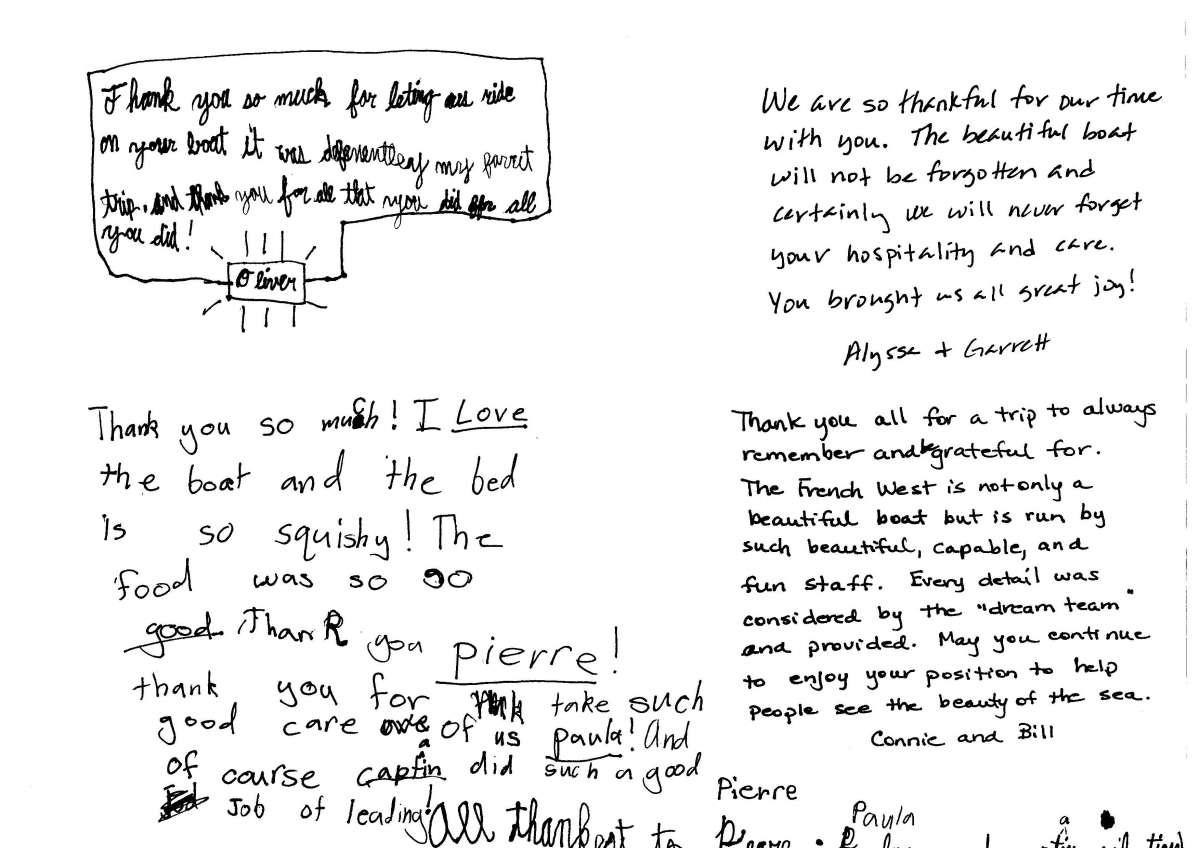 Thank you so much for leting us ride
on your boat it was defenentley my favrit
trip. and thank you for all that you did for all
you did!
Oliver
We are so thankful for our time
with you. The beautiful boat
will not be forgotten and
certainly we will never forget
your hospitality and care.
You brought us all great joy!
Alyssa + Garrett
Thank you so much! I Love
the boat and the bed
is so squishy! The
food was so go
good Thank you pierre!
thank you for take such
good care of us paula! And
of course captain did such a good
Job of leading!
Thank you all for a trip to always
remember and be grateful for.
The French West is not only a
beautiful boat but is run by
such beautiful, capable, and
fun staff. Every detail was
considered by the "dream team"
and provided. May you continue
to enjoy your position to help
people see the beauty of the sea.
Connie and Bill
Pierre
Paula
All to